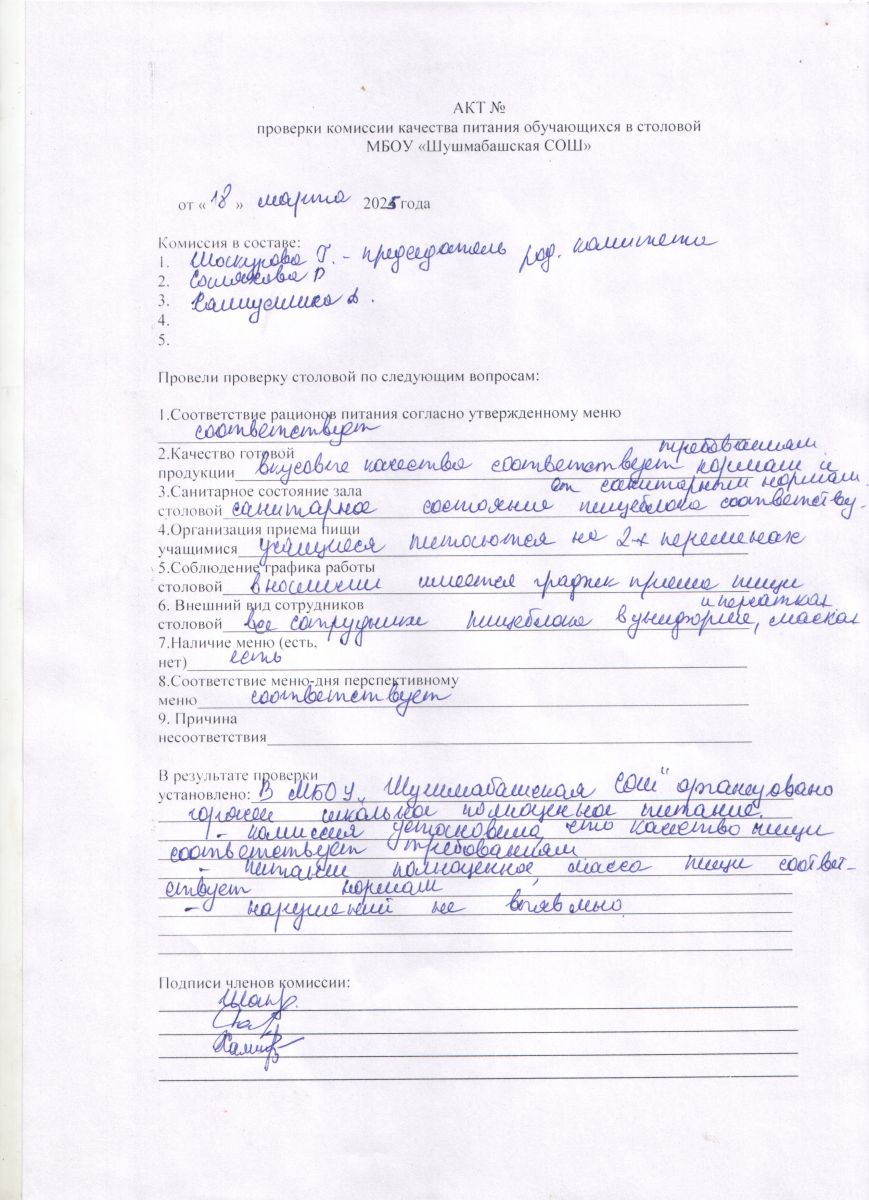 АКТ №
проверки комиссии качества питания обучающихся в столовой
МБОУ «Шушмабашская СОШ»
от « 18 » марта 2025 года
Комиссия в составе:
1. Г. - председатель род. комитета
2.
3.
4.
5.
Провели проверку столовой по следующим вопросам:
1.Соответствие рационов питания согласно утвержденному меню
соответствует
2.Качество готовой требованиям
продукции вкусовые качества соответствует нормам и
3.Санитарное состояние зала ет санитарным нормам.
столовой санитарное состояние пищеблока соответству-
4.Организация приема пищи
учащимися учащиеся питаются на 2-х переменах
5.Соблюдение графика работы
столовой в наличии имеется график приема пищи
6. Внешний вид сотрудников и перчатках
столовой все сотрудники пищеблока в униформе, масках
7.Наличие меню (есть,
нет) есть
8.Соответствие меню-дня перспективному
меню соответствует
9. Причина
несоответствия
В результате проверки
установлено: В МБОУ „Шушмабашская СОШ" организовано
горячее школьное полноценное питание.
- комиссия установила, что качество пищи
соответствует требованиям
- питание полноценное, масса пищи соответ-
ствует нормам
- нарушений не выявлено
Подписи членов комиссии: